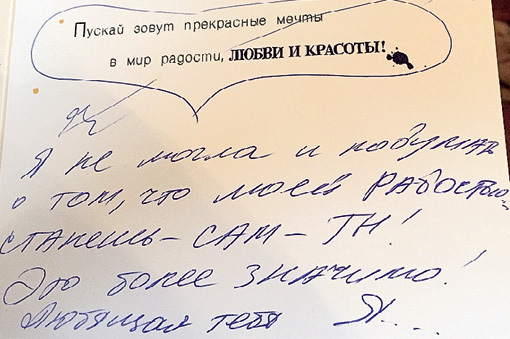 Пускай зовут прекрасные мечты
в мир радости, ЛЮБВИ И КРАСОТЫ!
Я не могла и подумать
о том, что моей РАДОСТЬЮ
станешь - САМ - ТЫ!
Это более значимо!
Любящая тебя Я....